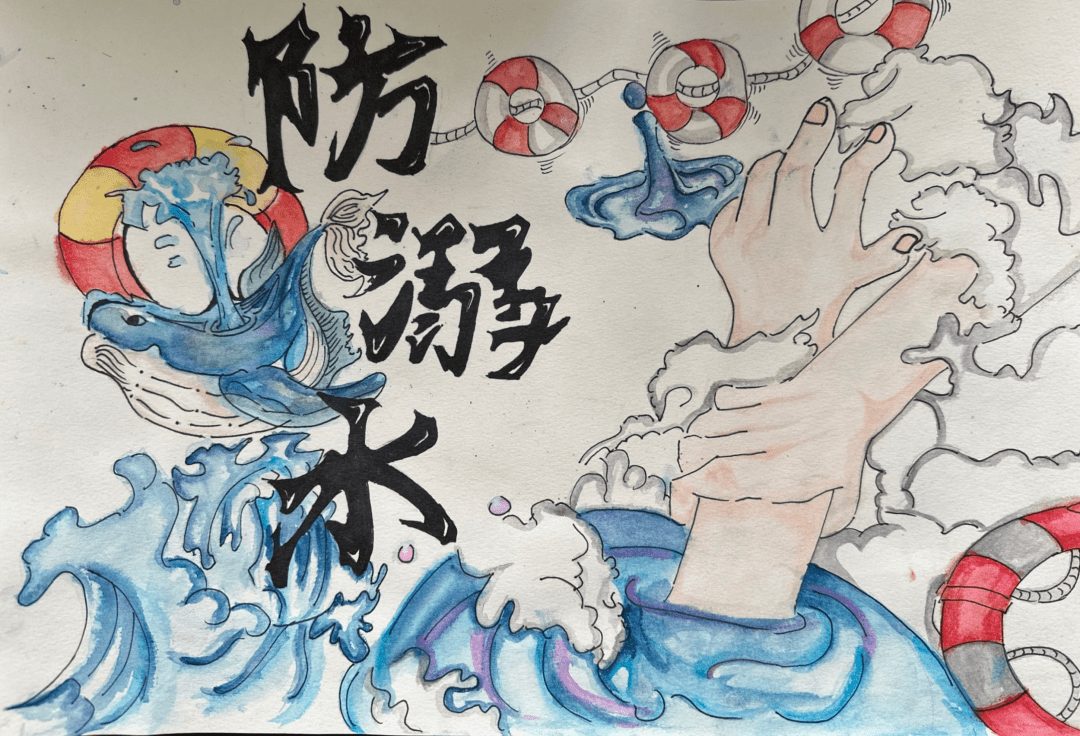 防溺水